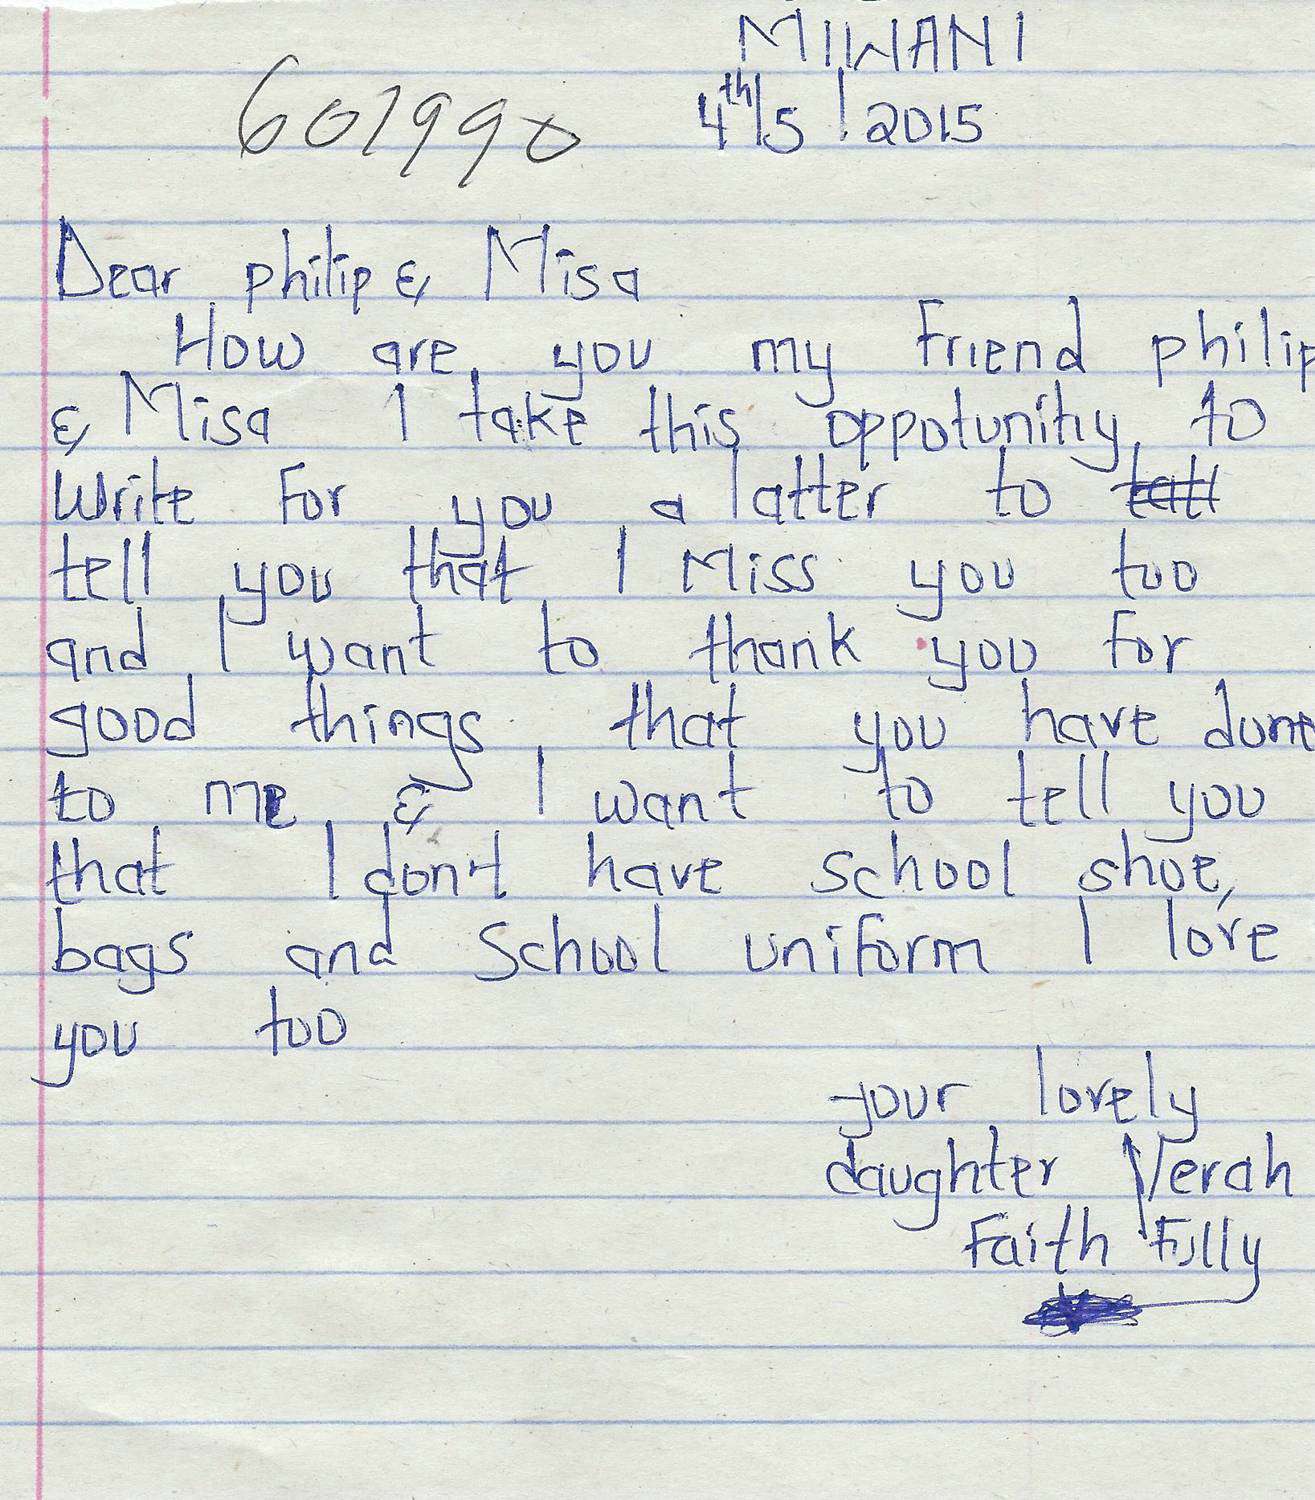 MIWANI
601990 4th/5/2015
Dear philip & Misa
How are you my friend philip
& Misa I take this oppotunity to
write for you a latter to tatl
tell you that I Miss you too
and I want to thank you for
good things that you have done
to me & I want to tell you
that I don't have school shoe,
bags and school uniform I love
you too
your lovely
daughter Verah
Faith Fully